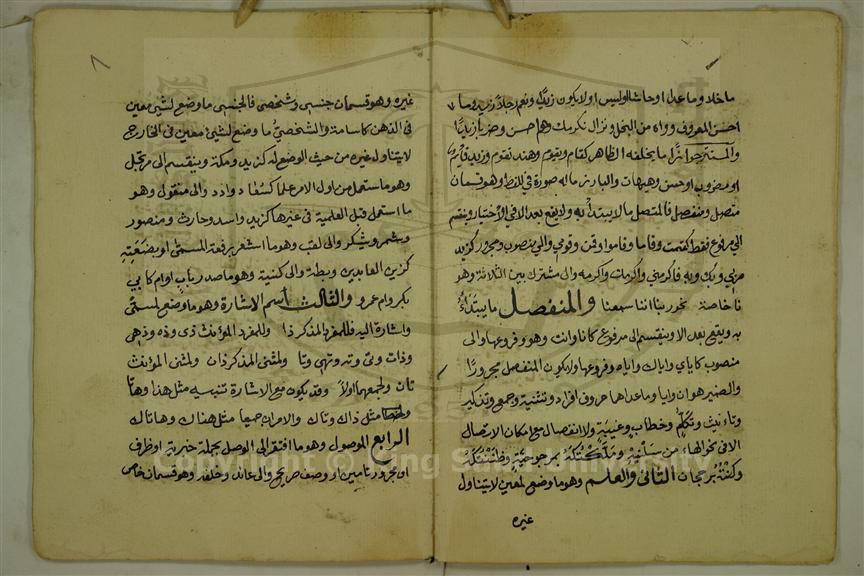 ما خلا وما عدا او حاشا او ليس او لا يكون زيدا ونعم رجلا زيد وما
احسن المعروف وواه من البخل ونزال نكرمك وهم احسن وضربا زيدا
والمستتر جوازا ما يخلفه الظاهر كقام ويقوم وهند تقوم وزيد قائم
او مضروب او حسن وهيهات والبارز ماله صورة في اللفظ وهو قسمان
متصل ومنفصل فالمتصل مالا يبتدأ به ولا يقع بعد الا في الاختيار وينقسم
الى مرفوع فقط كقمت وقاما وقاموا وقمن وقومي والى منصوب ومجرور كزيد
وبك وبه فاكرمني واكرمك واكرمه والى مشترك بين الثلاثة وهو
نا خاصة نحو ربنا اننا سمعنا والمنفصل ما يبتدأ
به ويقع بعد الا وينقسم الى مرفوع كانا وانت وهو وفروعها والى
منصوب كاياي واياك واياه وفروعها ولا يكون المنفصل مجرورا
والضمير هو ان وايا وما عداها حروف افراد وتثنية وجمع وتذكير
وتانيث وتكلم وخطاب وغيبة ولا انفصال مع امكان الاتصال
الا في نحو الهاء من سلنيه وملكتكه بمرجوحية وظننتكه
وكنته برجحان الثاني والعلم وهو ما وضع لمعين لا يتناول
غيره
٨
غيره وهو قسمان جنسي وشخصي فالجنسي ما وضع لشيئ معين
في الذهن كاسامة والشخصي ما وضع لشيئ معين في الخارج
لا يتناول غيره من حيث الوضع له كزيد ومكة وينقسم الى مرتجل
وهو ما استعمل من اول الامر علما كسعاد وادد والى منقول وهو
ما استعمل قبل العلمية في غيرها كزيد واسد وحارث ومنصور
وشمر ويشكر والى لقب وهو ما اشعر برفعة المسمى او بضعته
كزين العابدين وبطة والى كنية وهو ما صدر باب او ام كابي
بكر وام عمرو والثالث اسم الاشارة وهو ما وضع لمسمى
واشارة اليه فللمفرد المذكر ذا وللمفرد المؤنث ذي وذه وذهي
وذات وتي وته وتهي وتا ولمثنى المذكر ذان ولمثنى المؤنث
تان ولجمعهما اولاء وقد يكون مع الاشارة تنبيه مثل هذا وهاتا
مثل ذاك وتاك والامران جميعا مثل هذاك وهاتاك
الرابع الموصول وهو ما افتقر الى الوصل بجملة خبرية او ظرف
او مجرور تامين او وصف صريح والى عائد وخلفه وهو قسمان خاص
Copyright © King Saud University